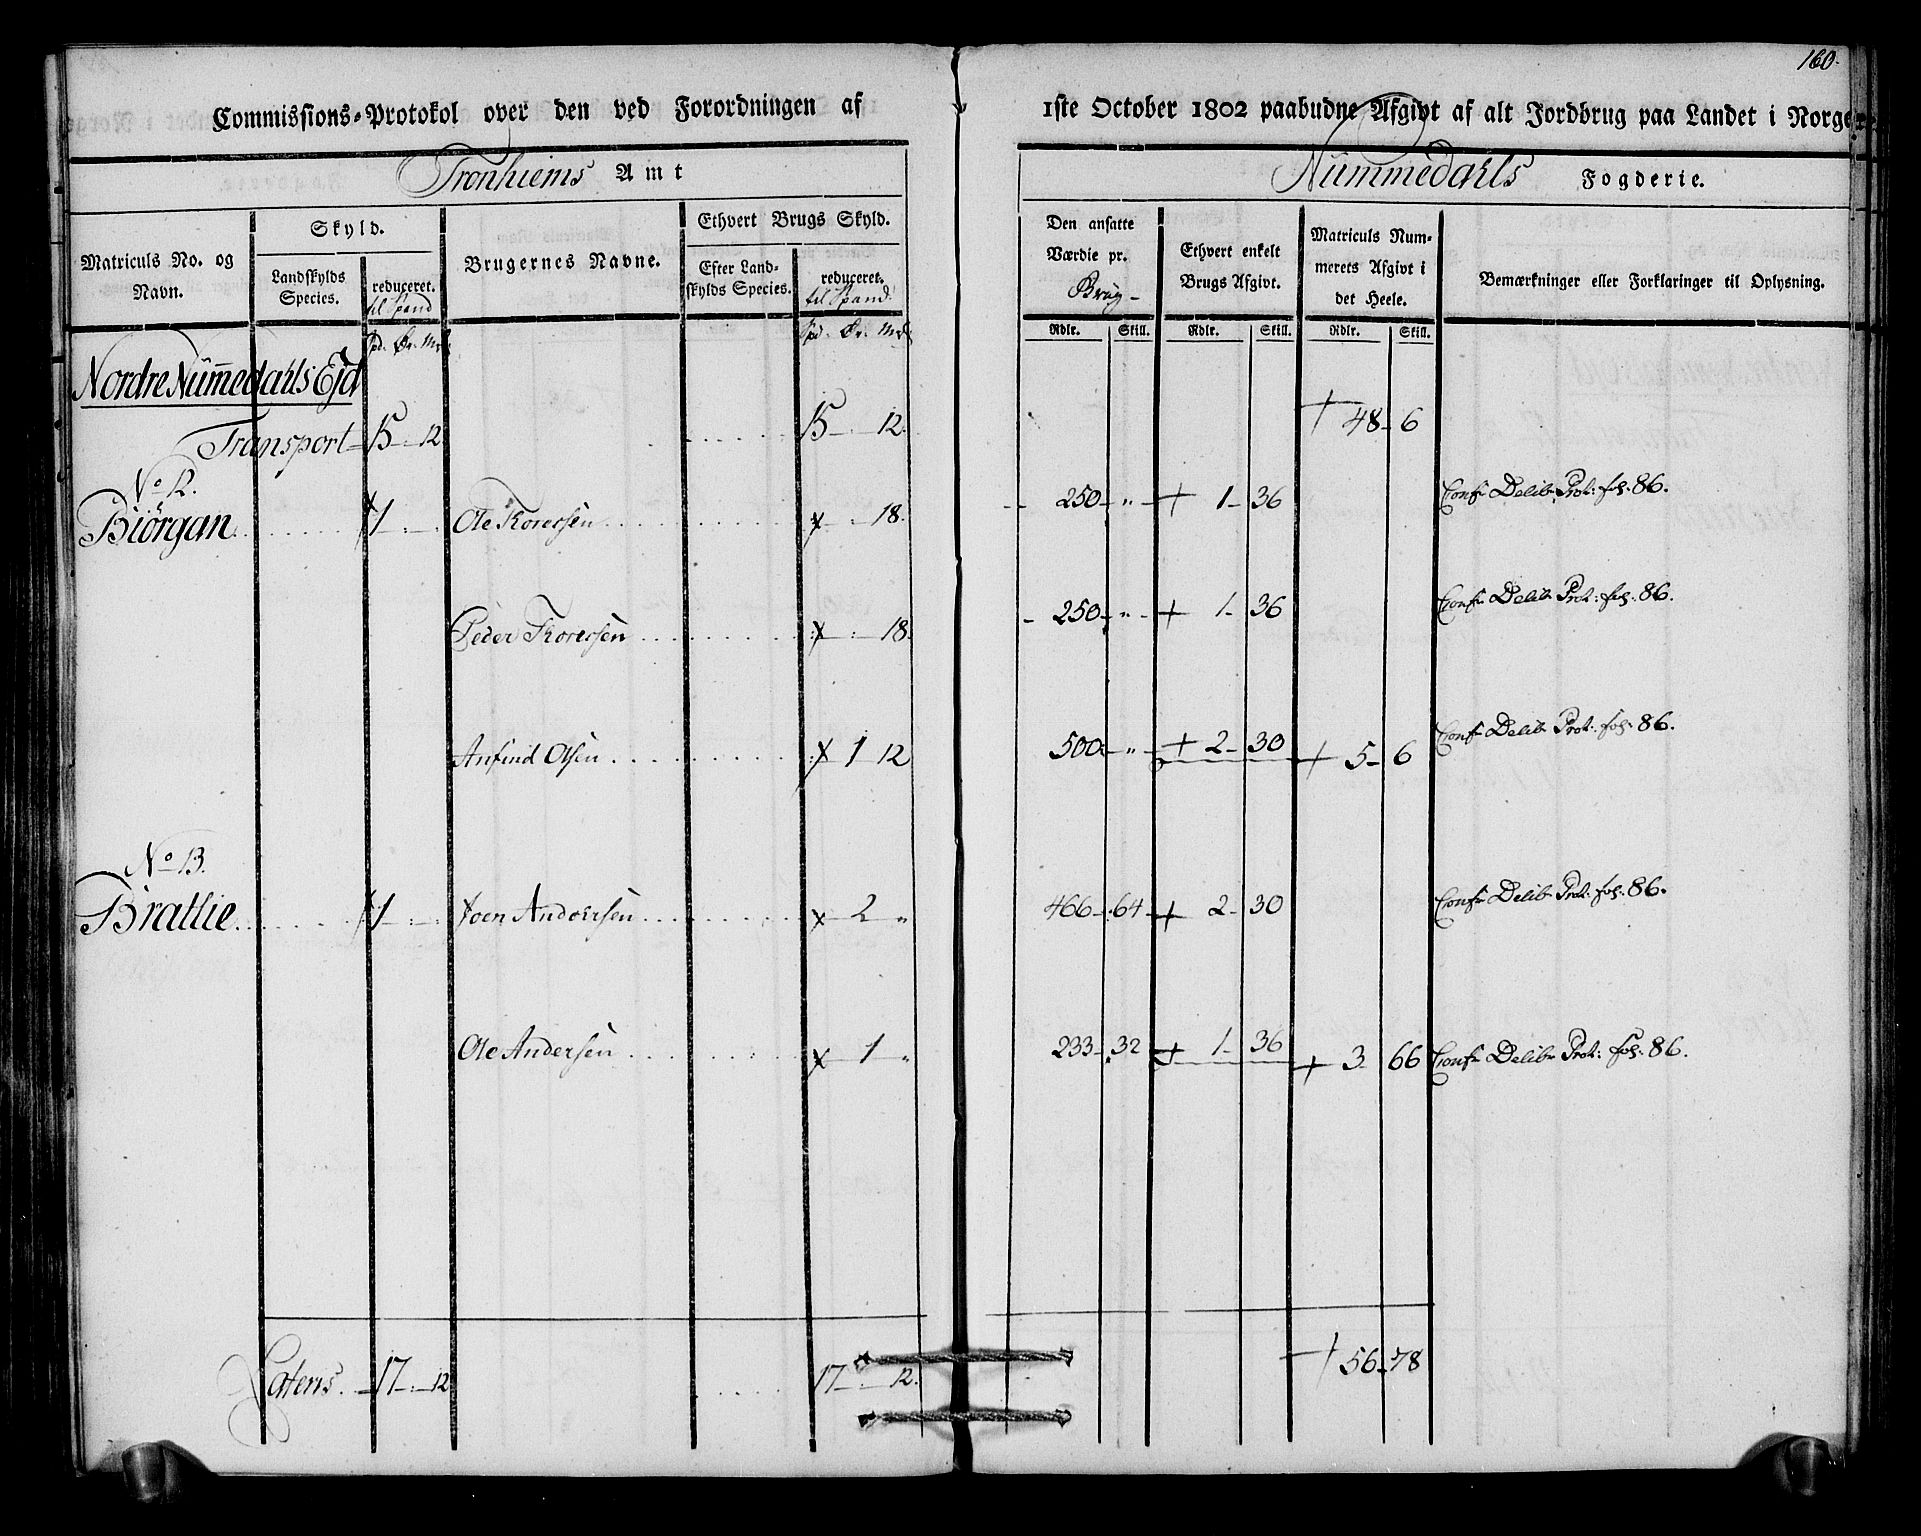 160.
Commissions-Protokol over den ved Forordningen af 1ste October 1802 paabudne Afgivt af alt Jordbrug paa Landet i Norge
Tronhiems Amt Nummedahls Fogderie.
Matriculs No. og Navn.
Skyld.
Landskylds Species.
reduceret. til Spand
Brugernes Navne.
Ethvert Brugs Skyld.
Efter Landskylds Species.
reduceret. til Spand.
Den ansatte Værdie pr. Brug
Ethvert enkelt Brugs Afgivt.
Matriculs Nummerets Afgivt i det Heele.
Bemærkninger eller Forklaringer til Oplysning.
Spd. Ør. Mrk Spd. Ør. Mrk Rdlr. Skill. Rdlr. Skill. Rdlr. Skill.
Nordre Nummedahls Ejd
Transport 15 - 12 15 - 12. + 48 - 6
No 12.
Biörgan 1 Ole Thoresen 18. 250 - " + 1 - 36 Conf: Delib: Prot: fol: 86.
Peder Thoresen 18. 250 - " + 1 - 36 Conf: Delib: Prot: fol: 86.
Anfind Olsen 1 12 500 - " + 2 - 30 + 5 - 6 Conf: Delib: Prot: fol: 86.
No 13.
Bratlie 1 Joen Andersen 2 " 466 - 64 + 2 - 30 Conf: Delib: Prot: fol: 86.
Ole Andersen 1 " 233 - 32 + 1 - 36 + 3 - 66 Conf: Delib: Prot: fol: 86.
Lateris 17 - 12 17 - 12. + 56 - 78